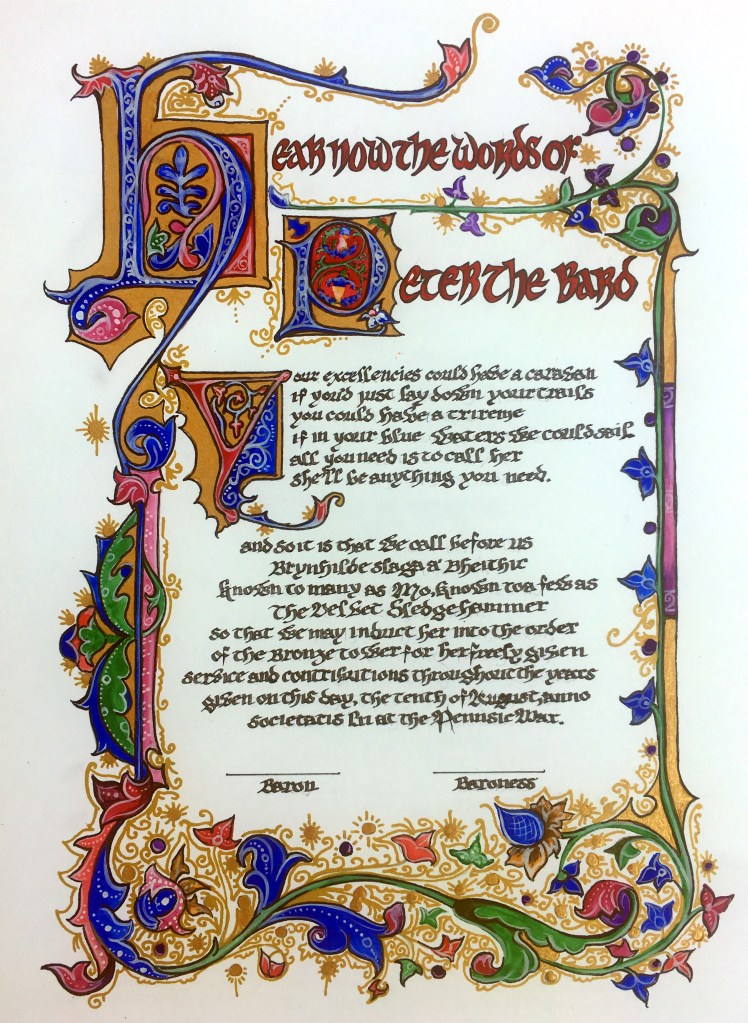 Hear now the words of
Peter the Bard
Your excellencies could have a caravan
if you'd just lay down your trails
you could have a trireme
if in your blue waters we could sail
all you need is to call her
she'll be anything you need.
and so it is that we call before us
Brynhilde slaga a' Bheithir
known to many as Mo, known to a few as
The Velvet Sledgehammer
so that we may induct her into the order
of the Bronze tower for her freely given
service and contributions throughout the years
given on this day, the tenth of August, anno
societatis Ln at the Pennsic War.
Baron
Baroness